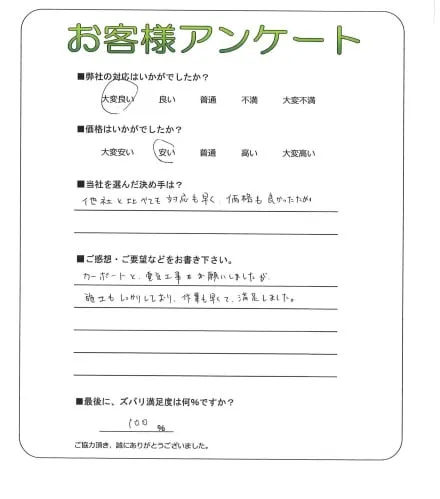 お客様アンケート
■弊社の対応はいかがでしたか？
大変良い 良い 普通 不満 大変不満
■価格はいかがでしたか？
大変安い 安い 普通 高い 大変高い
■当社を選んだ決め手は？
他社と比べても対応も早く、価格も良かったため
■ご感想・ご要望などをお書き下さい。
カーポートと、電気工事をお願いしましたが、
施工もしっかりしており、作業も早くて、満足しました。
■最後に、ズバリ満足度は何％ですか？
100 ％
ご協力頂き、誠にありがとうございました。